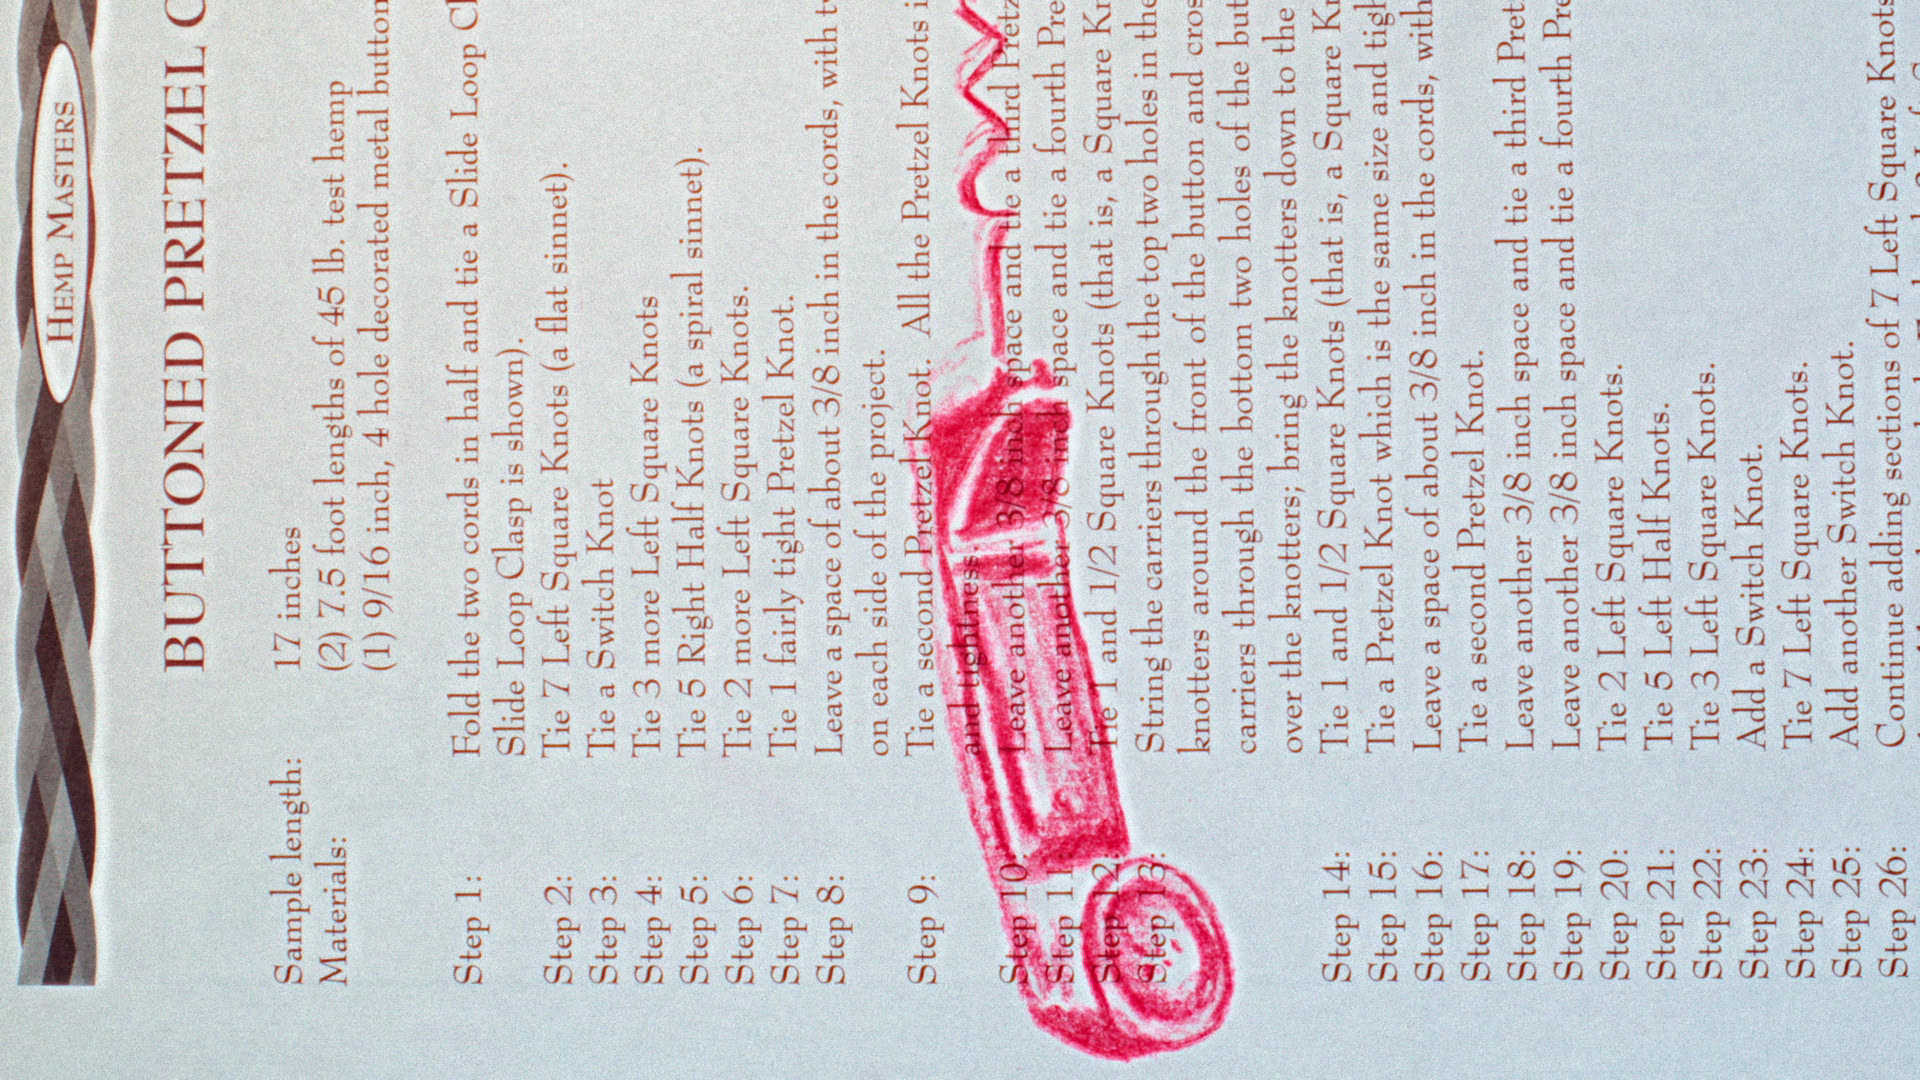 HEMP MASTERS
BUTTONED PRETZEL
Sample length: 17 inches
Materials: (2) 7.5 foot lengths of 45 lb. test hemp
(1) 9/16 inch, 4 hole decorated metal button
Step 1: Fold the two cords in half and tie a Slide Loop
Slide Loop Clasp is shown).
Step 2: Tie 7 Left Square Knots (a flat sinnet).
Step 3: Tie a Switch Knot
Step 4: Tie 3 more Left Square Knots
Step 5: Tie 5 Right Half Knots (a spiral sinnet).
Step 6: Tie 2 more Left Square Knots.
Step 7: Tie 1 fairly tight Pretzel Knot.
Step 8: Leave a space of about 3/8 inch in the cords, with
on each side of the project.
Step 9: Tie a second Pretzel Knot. All the Pretzel Knots
and tightness.
Step 10: Leave another 3/8 inch space and tie a third
Step 11: Leave another 3/8 inch space and tie a fourth
Step 12: Tie 1 and 1/2 Square Knots (that is, a Square
Step 13: String the carriers through the top two holes in the
knotters around the front of the button and
carriers through the bottom two holes of the
over the knotters; bring the knotters down to the
Step 14: Tie 1 and 1/2 Square Knots (that is, a Square
Step 15: Tie a Pretzel Knot which is the same size and
Step 16: Leave a space of about 3/8 inch in the cords, with
Step 17: Tie a second Pretzel Knot.
Step 18: Leave another 3/8 inch space and tie a third
Step 19: Leave another 3/8 inch space and tie a fourth
Step 20: Tie 2 Left Square Knots.
Step 21: Tie 5 Left Half Knots.
Step 22: Tie 3 Left Square Knots.
Step 23: Add a Switch Knot.
Step 24: Tie 7 Left Square Knots.
Step 25: Add another Switch Knot.
Step 26: Continue adding sections of 7 Left Square Knots